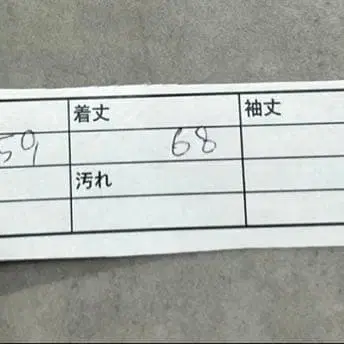 着丈 袖丈
59 68
汚れ